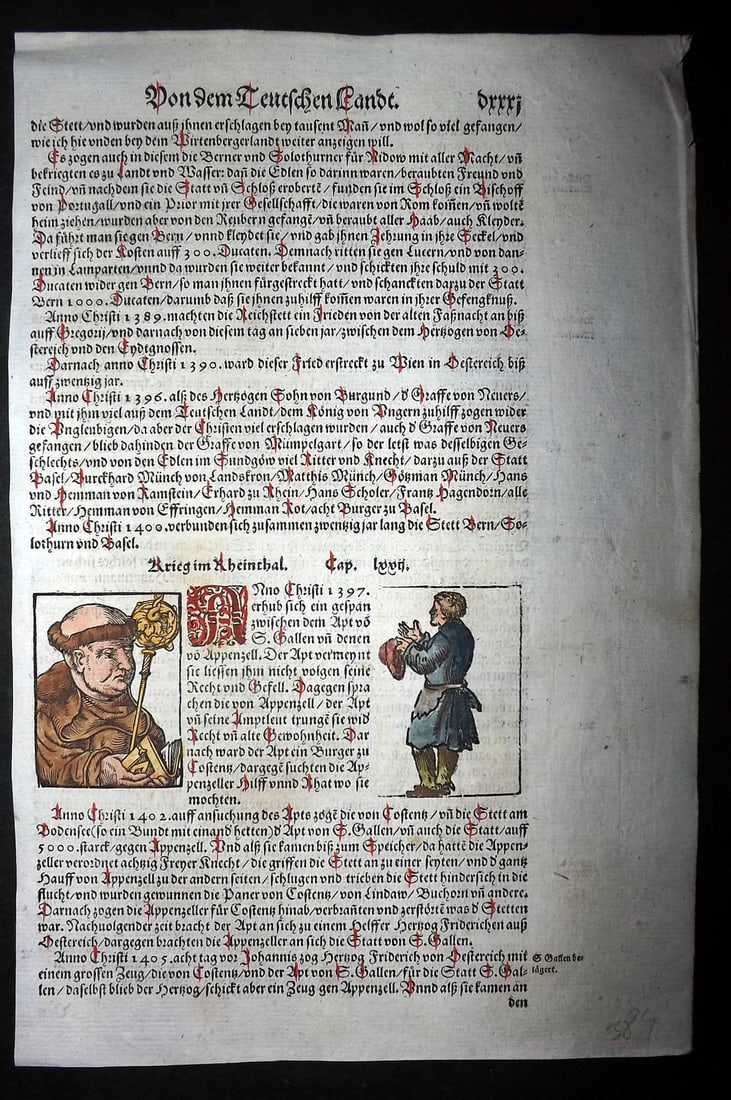 Von dem Teutschen Landt. dxxxj
die Stett/vnd wurden auß jhnen erschlagen bey tausent Mañ/vnd wol so viel gefangen/
wie ich hie vnden bey dem Wirtenbergerlandt weiter anzeigen will.
Es zogen auch in diesem die Berner vnd Solothurner für Nidow mit aller Macht/vñ
bekriegten es zu Landt vnd Wasser: dañ die Edlen so darinn waren/beraubten Freund vnd
Feind/vñ nachdem sie die Statt vñ Schloß erobertē/funden sie im Schloß ein Bischoff
von Portugall/vnd ein Prior mit jrer Gesellschafft/die waren von Rom kom̃en/vñ woltē
heim ziehen/wurden aber von den Reubern gefangē/vñ beraubt aller Haab/auch Kleyder.
Da führt man sie gen Bern/vnnd kleydet sie/vnd gab jhnen Zehrung in jhre Seckel/vnd
verlieff sich der Kosten auff 300. Ducaten. Demnach ritten sie gen Lucern/vnd von dan-
nen in Lamparten/vnnd da wurden sie weiter bekannt/vnd schickten jhre schuld mit 300.
Ducaten wider gen Bern/so man jhnen fürgestreckt hatt/vnd schanckten darzu der Statt
Bern 1000. Ducaten/darumb daß sie jhnen zuhilff kom̃en waren in jhrer Gefengknuß.
Anno Christi 1389. machten die Reichstett ein Frieden von der alten Faßnacht an biß
auff Gregorij/vnd darnach von diesem tag an sieben jar/zwischen dem Hertzogen von Oe-
stereich vnd den Eydtgnossen.
Darnach anno Christi 1390. ward dieser Fried erstreckt zu Wien in Oestereich biß
auff zwentzig jar.
Anno Christi 1396. alß des Hertzogen Sohn von Burgund/d' Graffe von Neuers/
vnd mit jhm viel auß dem Teutschen Landt/dem König von Vngern zuhilff zogen wider
die Vngleubigen/da aber der Christen viel erschlagen wurden/auch d' Graffe von Neuers
gefangen/blieb dahinden der Graffe von Mümpelgart/so der letst was desselbigen Ge-
schlechts/vnd von den Edlen im Sundgöw viel Ritter vnd Knecht/darzu auß der Statt
Basel/Burckhard Münch von Landskron/Matthis Münch/Götzman Münch/Hans
vnd Hemman von Ramstein/Erhard zu Rhein/Hans Scholer/Frantz Hagendorn/alle
Ritter/Hemman von Effringen/Hemman Rot/acht Burger zu Basel.
Anno Christi 1400. verbunden sich zusammen zwentzig jar lang die Stett Bern/So-
lothurn vnd Basel.
Krieg im Rheinthal. Cap. lxxij.
ANno Christi 1397.
erhub sich ein gespan
zwischen dem Apt vō
S. Gallen vñ denen
vō Appenzell. Der Apt vermeynt
sie liessen jhm nicht volgen seine
Recht vnd Gefell. Dagegen spra
chen die von Appenzell/der Apt
vñ seine Amptleut trungē sie wid'
Recht vñ alte Gewohnheit. Dar
nach ward der Apt ein Burger zu
Costentz/dargegē suchten die Ap-
penzeller Hilff vnnd Rhat wo sie
mochten.
Anno Christi 1402. auff ansuchung des Apts zogē die von Costentz/vñ die Stett am
Bodensee (so ein Bundt mit einand' hetten) d' Apt von S. Gallen/vñ auch die Statt/auff
5000. starck/gegen Appenzell. Vnd alß sie kamen biß zum Speicher/da hattē die Appen-
zeller verordnet achtzig Freyer Knecht/die griffen die Stett an zu einer seyten/vnd d' gantz
Hauff von Appenzell zu der andern seiten/schlugen vnd trieben die Stett hindersich in die
flucht/vnd wurden gewunnen die Paner von Costentz/von Lindaw/Buchorn vñ andere.
Darnach zogen die Appenzeller für Costentz hinab/verbranten vnd zerstörtē was d' Stetten
war. Nachuolgender zeit bracht der Apt an sich zu einem Helffer Hertzog Friderichen auß
Oestereich/dargegen brachten die Appenzeller an sich die Statt von S. Gallen.
Anno Christi 1405. acht tag vor Johannis zog Hertzog Friderich von Oestereich mit
einem grossen Zeug/die von Costentz/vnd der Apt von S. Gallen/für die Statt S. Gal-
len/daselbst blieb der Hertzog/schickt aber ein Zeug gen Appenzell. Vnnd alß sie kamen an
den
S. Gallen be-
lägert.